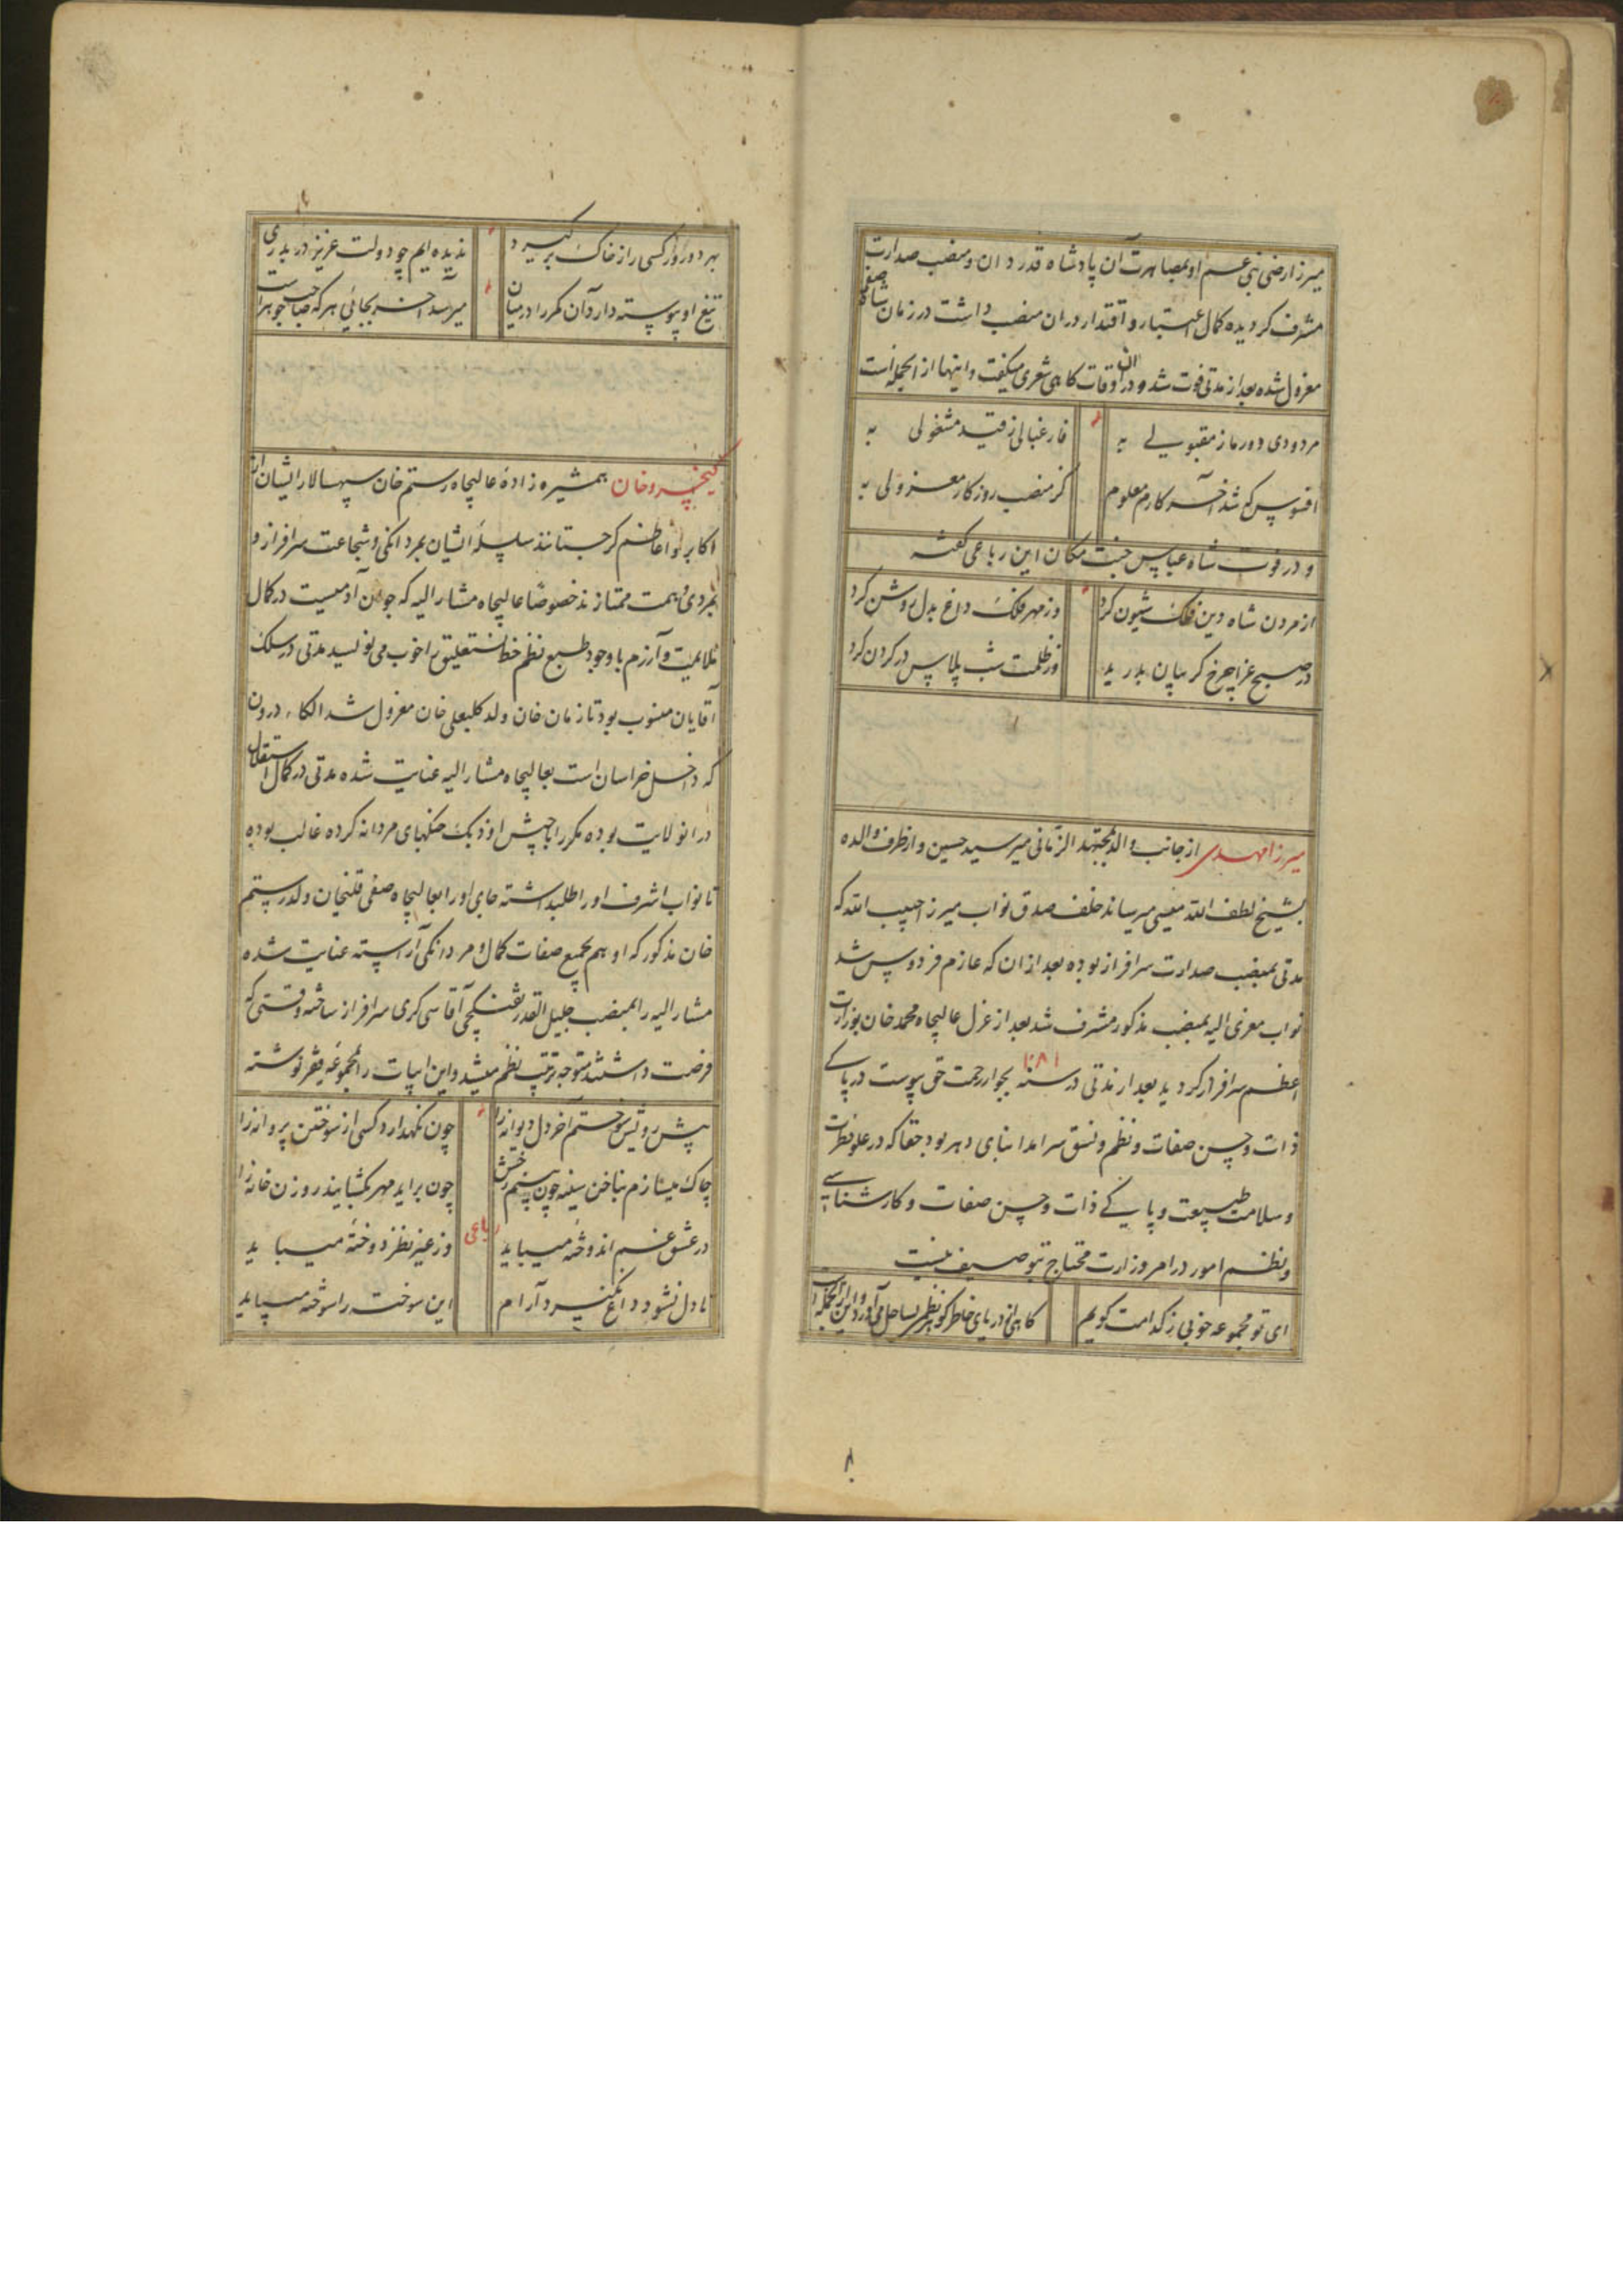 میرزا رضی بنی عم او بمصاهرت آن پادشاه قدردان و منصب صدارت
مشرف گردیده کمال اعتبار و اقتدار در ان منصب داشت در زمان شاه صفی
معزول شده بعد از مدتی فوت شد و در آن اوقات کاهی شعری میکفت و اینها از انجمله است
مردودی دور ما ز مقبولی به
فارغبالی ز قید مشغولی به
افسوس که شد آخر کارم معلوم
کز منصب روزکار معزولی به
و در فوت شاه عباس جنت مکان این رباعی گفته
از مردن شاه دین فلک شیون کرد
وز مهر فلک داغ بدل روشن کرد
در صبح عزا چرخ کریبان بدرید
وز ظلمت شب پلاس در کردن کرد
میرزا مهدی از جانب والد بمجتهد الزمانی میر سید حسین و از طرف والده
بشیخ لطف الله میسی میرساند خلف صدق نواب میرزا حبیب الله که
مدتی بمنصب صدارت سرافراز بوده بعد از ان که عازم فردوس شد
نواب معزی الیه بمنصب مذکور مشرف شد بعد از عزل عالیجاه محمد خان بوزارت
اعظم سرافراز کردید بعد از مدتی در سنه ۱۰۸۱ بجوار رحمت حق پیوست در پاکی
ذات و حسن صفات و نظم و نسق سرامد ابنای دهر بود حقا که در علو فطرت
و سلامت طبیعت و پاکی ذات و حسن صفات و کارشناسی
و نظم امور در امر وزارت محتاج بتوصیف نیست
ای تو مجموعه خوبی ز کدامت کویم
کاهی از دریای خاطر کوهر نظمی بساحل می آورد و این از آنجمله است
بهر دو روز کسی را ز خاک بر کیرد
ندیده ایم چو دولت عزیز در بدری
تیغ او پیوسته دارد آن کمر را در میان
میرسد آخر بجائی هر که صاحب جوهر است
کیخسرو خان همشیره زادهٔ عالیجاه رستم خان سپهسالار ایشان از
اکابر و اعاظم کرجستانند سلسلهٔ ایشان بمردانکی و شجاعت سرافراز و
بمردی و همت ممتازند خصوصا عالیجاه مشار الیه که جوان آدمیست در کمال
ملایمت و آزرم با وجود طبع نظم خط نستعلیق را خوب می نویسد مدتی در سلک
آقایان منسوب بود تا زمان خان ولد کلبعلی خان معزول شد الکاء درون
که داخل خراسان است بعالیجاه مشار الیه عنایت شده مدتی در کمال استقلال
در انولایت بوده مکرر با جیش اوزبک جنکهای مردانه کرده غالب بوده
تا نواب اشرف او را طلب داشته جای او را بعالیجاه صفی قلیخان ولد رستم
خان مذکور که او هم بجمیع صفات کمال و مردانکی آراسته عنایت شده
مشار الیه را بمنصب جلیل القدر تفنکچی آقاسی کری سرافراز ساخته وقتی که
فرصت داشتند متوجه ترتیب نظم میشد و این ابیات را بمجموعه فقیر نوشته
پیش رویش سوختم آخر دل دیوانه را
چون نکهدارد کسی از سوختن پروانه را
چاک میسازم بناخن سینه چون بینم رخش
چون براید مهر بکشایند روزن خانه را
رباعی
در عشق غم اندوخته میباید
وز غیر نظر دوخته میباید
تا دل نشود داغ نکیرد آرام
این سوخت را سوخته میباید